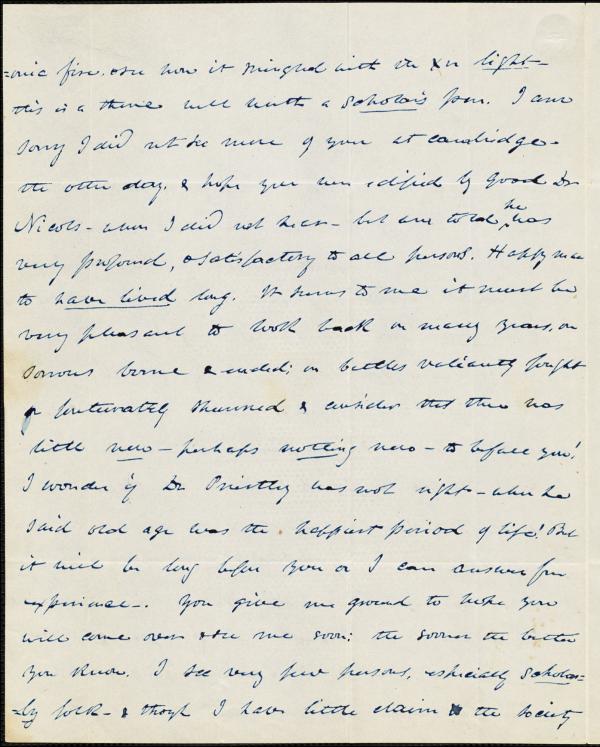 =onic fire. & see how it mingled with the light -
this is a theme well worth a Scholar's pen. I am
sorry I did not see more of you at cambridge -
the other day, & hope you were edified by good Dr
Nicols - whom I did not hear - but am told he was
very profound, & satisfactory to all persons. Happy man
to have lived long. It seems to me it must be
very pleasant to look back on many years, on
sorrows borne & ended; on battles valiantly fought
or fortunately shunned & consider that there was
little new - perhaps nothing new - to befall you!
I wonder if Dr Priestley was not right - when he
said old age was the happiest period of life! But
it will be long before you or I can answer from
experience -. You give me ground to hope you
will come over & see me soon: the sooner the better
you know. I see very few persons, especially scholar=
=ly folk - & though I have little claim to the society